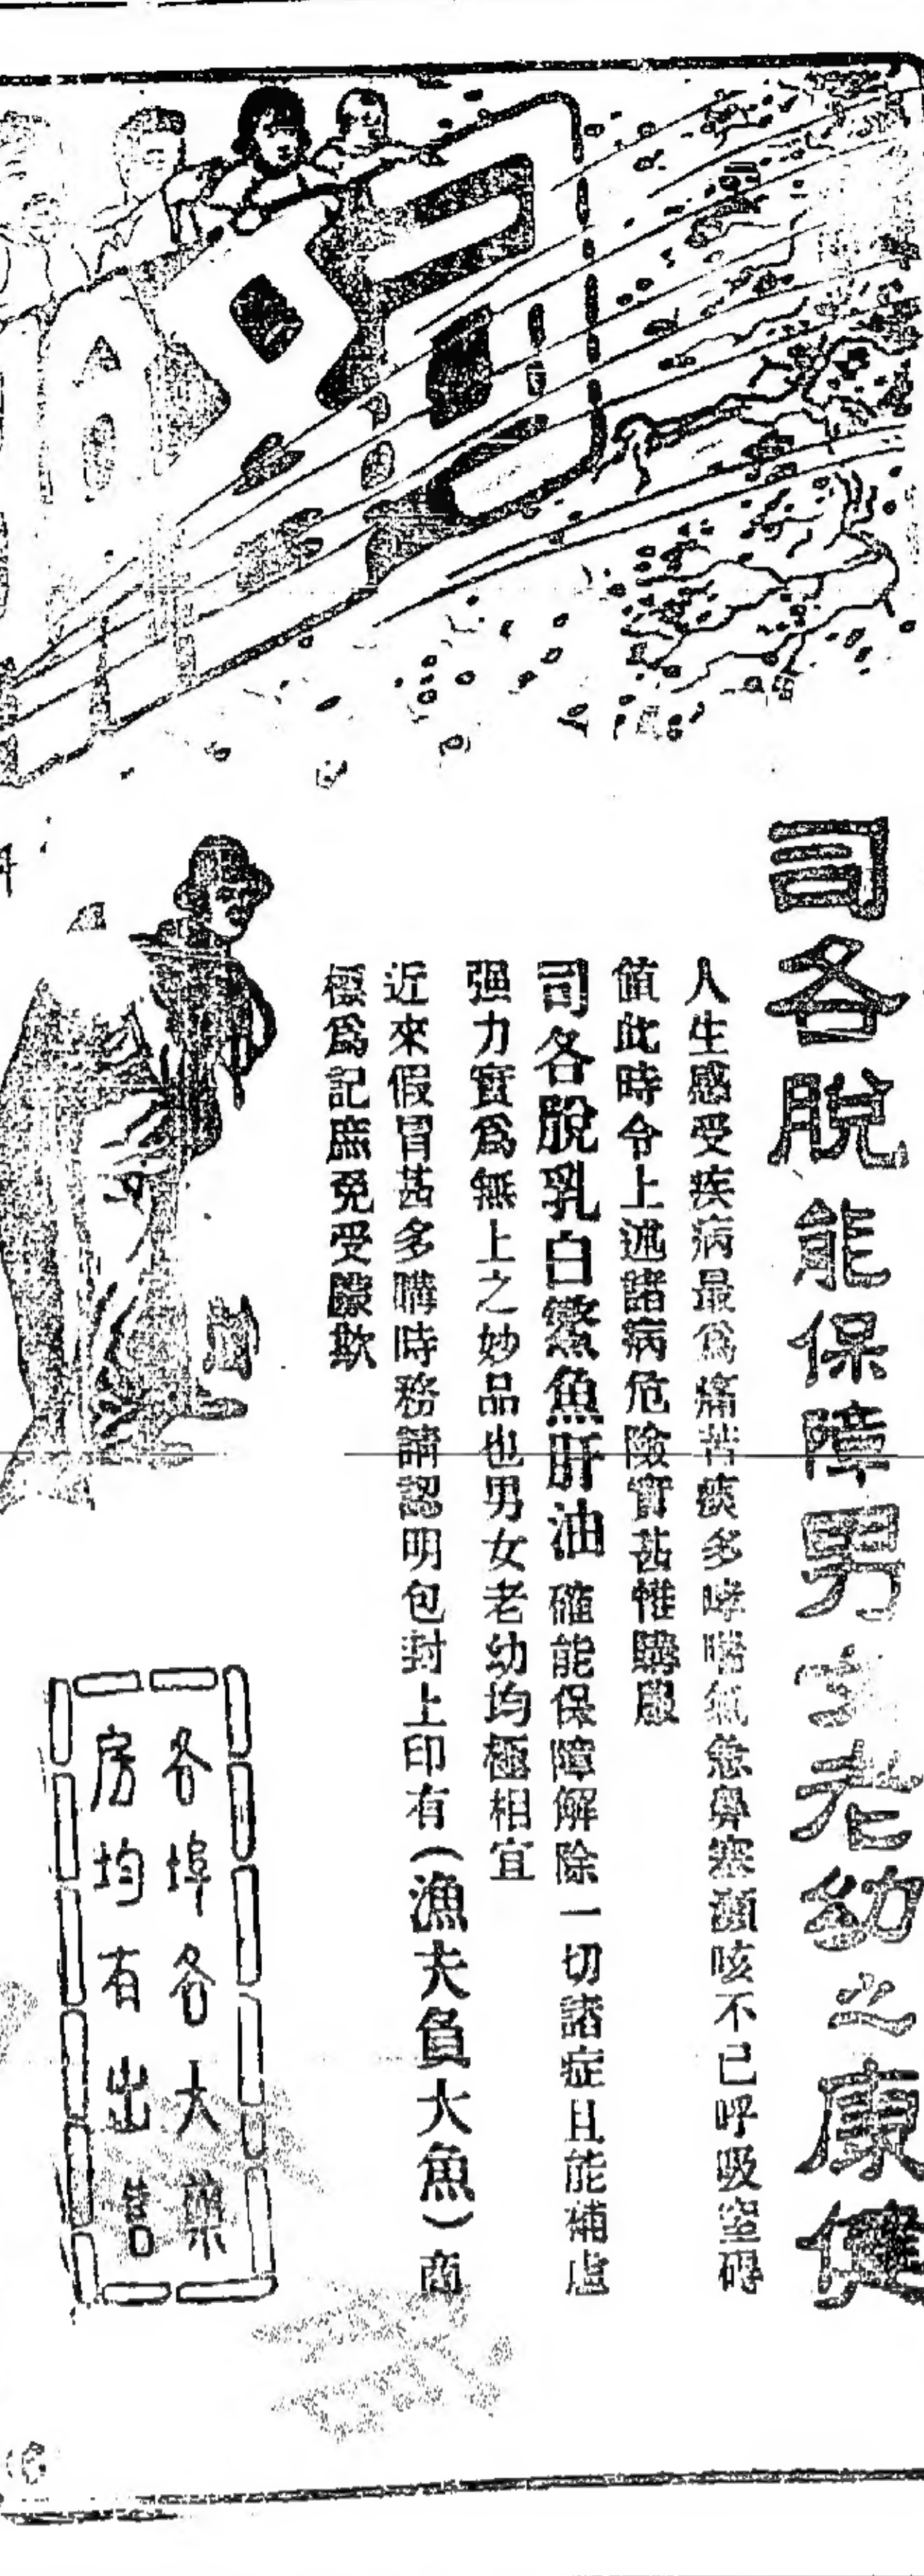 司各脫能保障男女老幼之康健
人生感受疾病最爲痛苦痰多哮喘氣急鼻塞頻咳不已呼吸窒碍
值此時令上述諸病危險實甚惟購服
司各脫乳白鰵魚肝油確能保障解除一切諸症且能補虛
强力實爲無上之妙品也男女老幼均極相宜
近來假冒甚多購時務請認明包封上印有(漁夫負大魚)商
標爲記庶免受朦欺
各埠各大藥
房均有出售